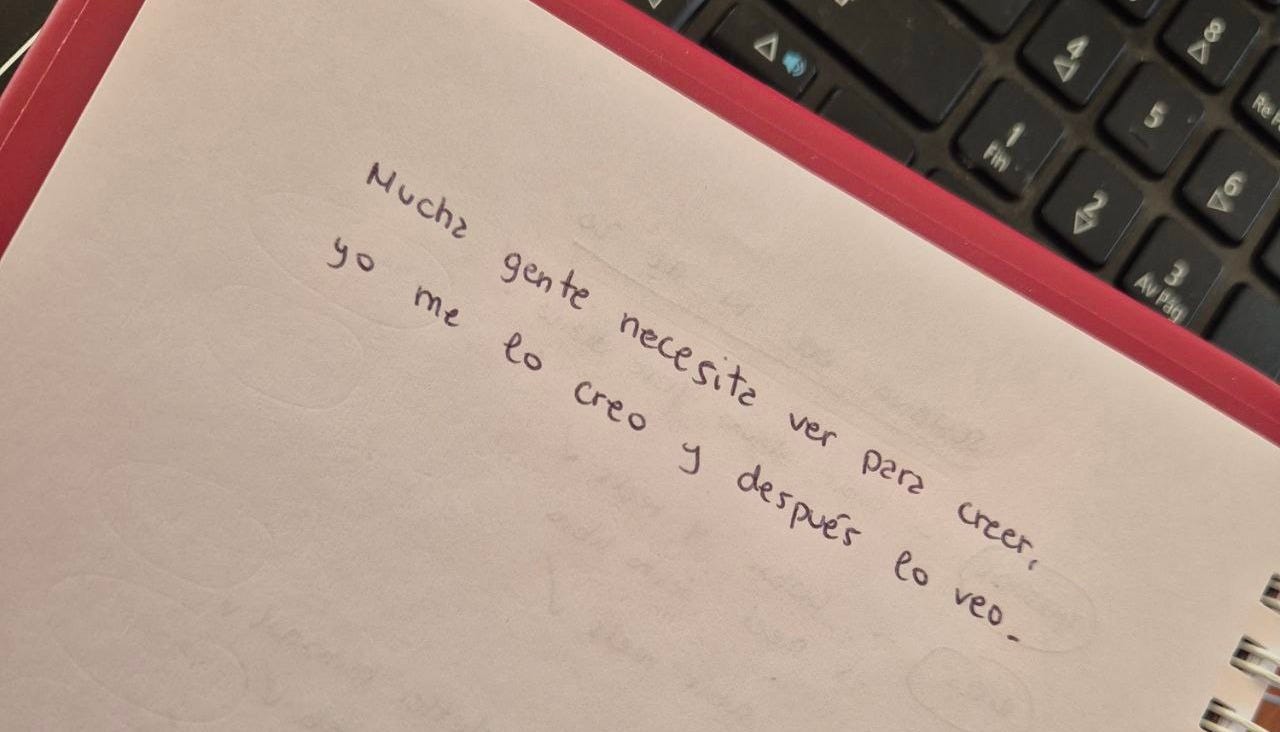 Mucha gente necesita ver para creer,
yo me lo creo y después lo veo.
8
4
5
1
Fin
6
2
3
Av Pág